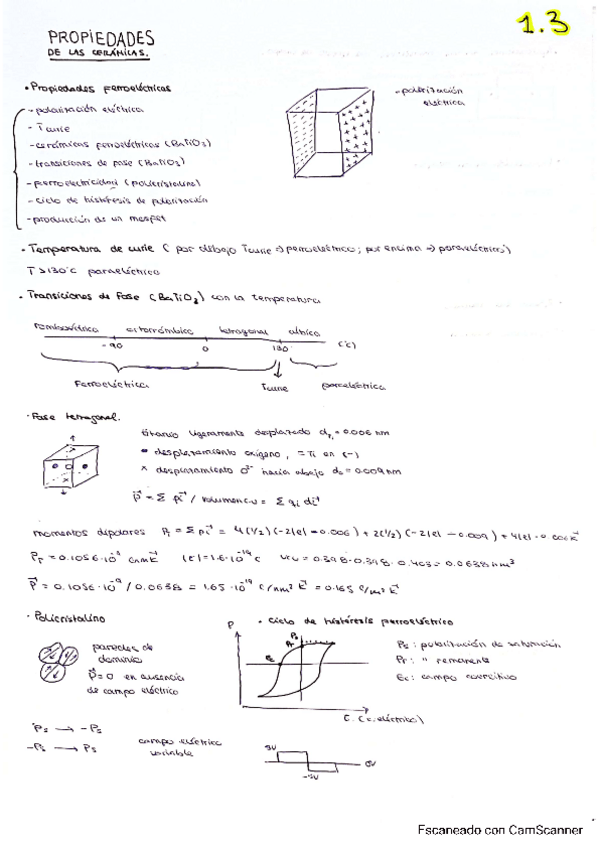 1.3
PROPIEDADES
DE LAS CERÁMICAS.
• Propiedades ferroeléctricas
- polarización eléctrica
- T curie
- cerámicas ferroeléctricas (BaTiO3)
- transiciones de fase (BaTiO3)
- ferroelectricidad (policristalino)
- ciclo de histéresis de polarización
- producción de un mosfet
- polarización
eléctrica
• Temperatura de curie ( por debajo Tcurie => ferroeléctrico; por encima => paraeléctrico)
T > 130°C paraeléctrico
• Transiciones de Fase (BaTiO3) con la temperatura
romboédrica ortorrómbico tetragonal cúbica
-90 0 130 (°C)
Ferroeléctrica Tcurie paraeléctrica
• Fase tetragonal.
titanio ligeramente desplazado = 0.006 nm
• desplazamiento oxígeno, = Ti en (-)
x desplazamiento O2- hacia abajo do = 0.009 nm
P = Σ pi / volumen c.u = Σ qi di
momentos dipolares PT = Σ pi = 4(1/2)(-2|e| -0.006) + 2(1/2)(-2|e| -0.009) + 4|e| 0.006 k
PT = 0.1056·10^-9 C nm k |e| = 1.6·10^-19 C Vcu = 0.398·0.398·0.403 = 0.0638 nm3
P = 0.1056·10^-9 / 0.0638 = 1.65·10^-19 C/nm2 k = 0.165 C/m2 k
• Policristalino
• Ciclo de histéresis ferroeléctrico
paredes de
dominio
P = 0 en ausencia
de campo eléctrico
P
Ps
Pr
Ec
C. (c. eléctrico)
Ps: polarización de saturación
Pr: " remanente
Ec: campo coercitivo
Ps → -Ps
-Ps → Ps
campo eléctrico
variable
3V
0V
-3V
Escaneado con CamScanner